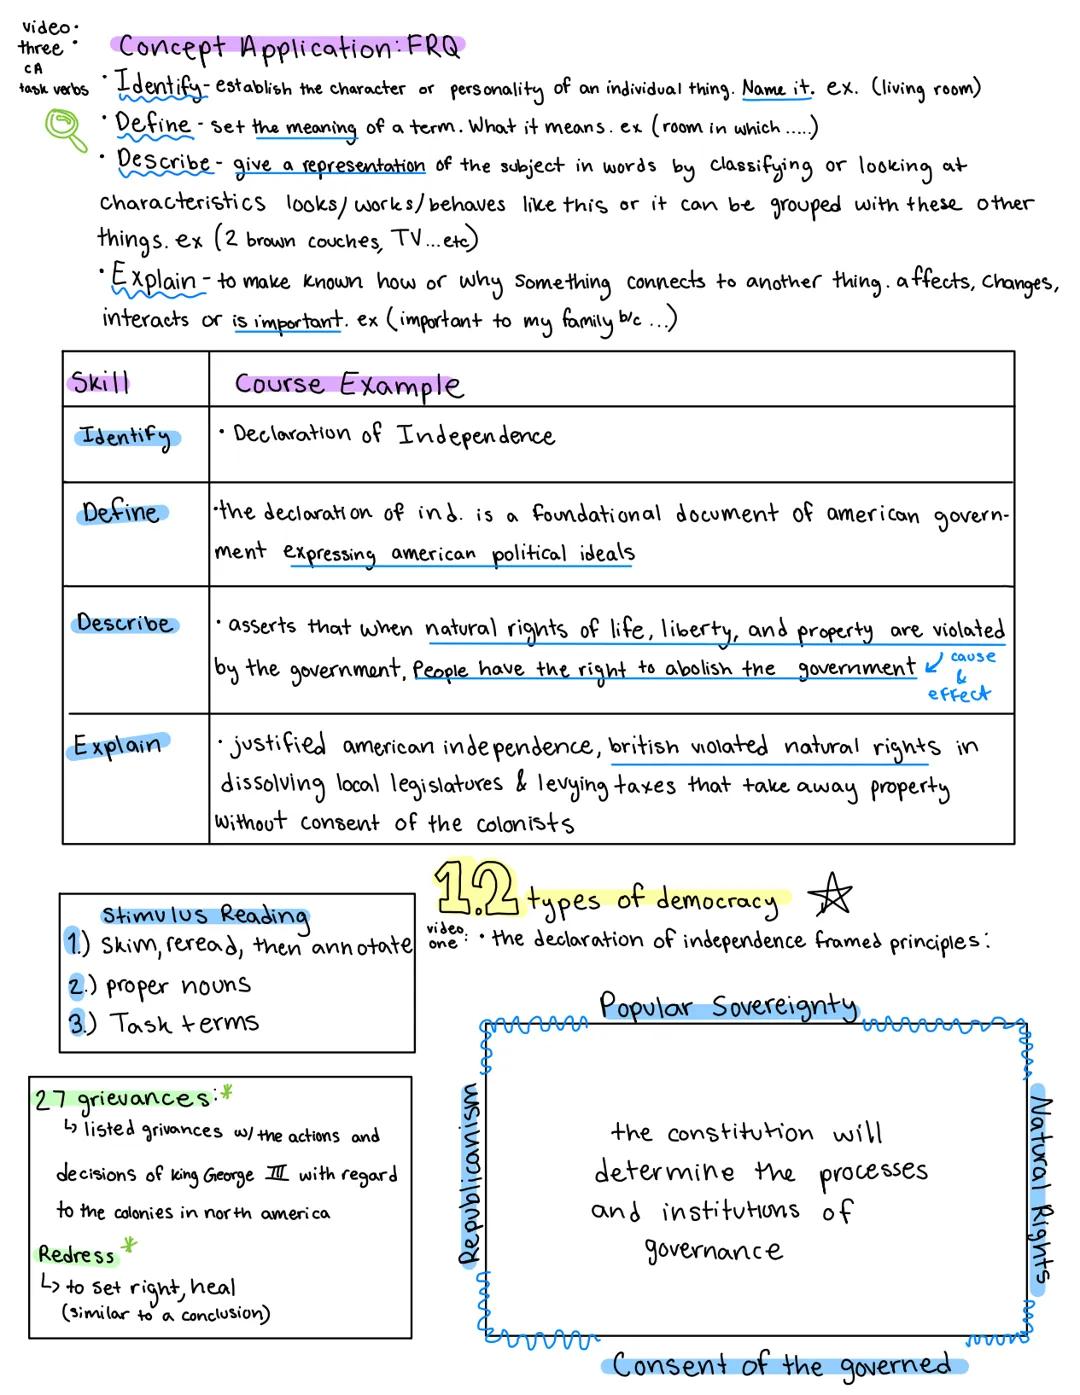 video.
three
CA
task verbs
Concept Application: FRQ
· Identify - establish the character or personality of an individual thing. Name it. ex. (living room)
· Define - set the meaning of a term. What it means. ex (room in which .....)
· Describe - give a representation of the subject in words by classifying or looking at
characteristics looks/works/behaves like this or it can be grouped with these other
things. ex (2 brown couches, TV...etc)
· Explain - to make known how or why something connects to another thing. affects, changes,
interacts or is important. ex (important to my family b/c ...)
Skill
Course Example
Identify
· Declaration of Independence
Define
· the declaration of ind. is a foundational document of american govern-
ment expressing american political ideals
Describe
· asserts that when natural rights of life, liberty, and property are violated
by the government, People have the right to abolish the government
cause
&
effect
Explain
· justified american independence, british violated natural rights in
dissolving local legislatures & levying taxes that take away property
without consent of the colonists
Stimulus Reading
1.) Skim, reread, then annotate
2.) proper nouns
3.) Task terms
27 grievances: *
↳ listed grivances w/ the actions and
decisions of king George III with regard
to the colonies in north america
Redress *
↳ to set right, heal
(similar to a conclusion)
1.2 types of democracy
video
one: · the declaration of independence framed principles:
Popular Sovereignty
Republicanism
the constitution will
determine the processes
and institutions of
governance
Natural Rights
Consent of the governed